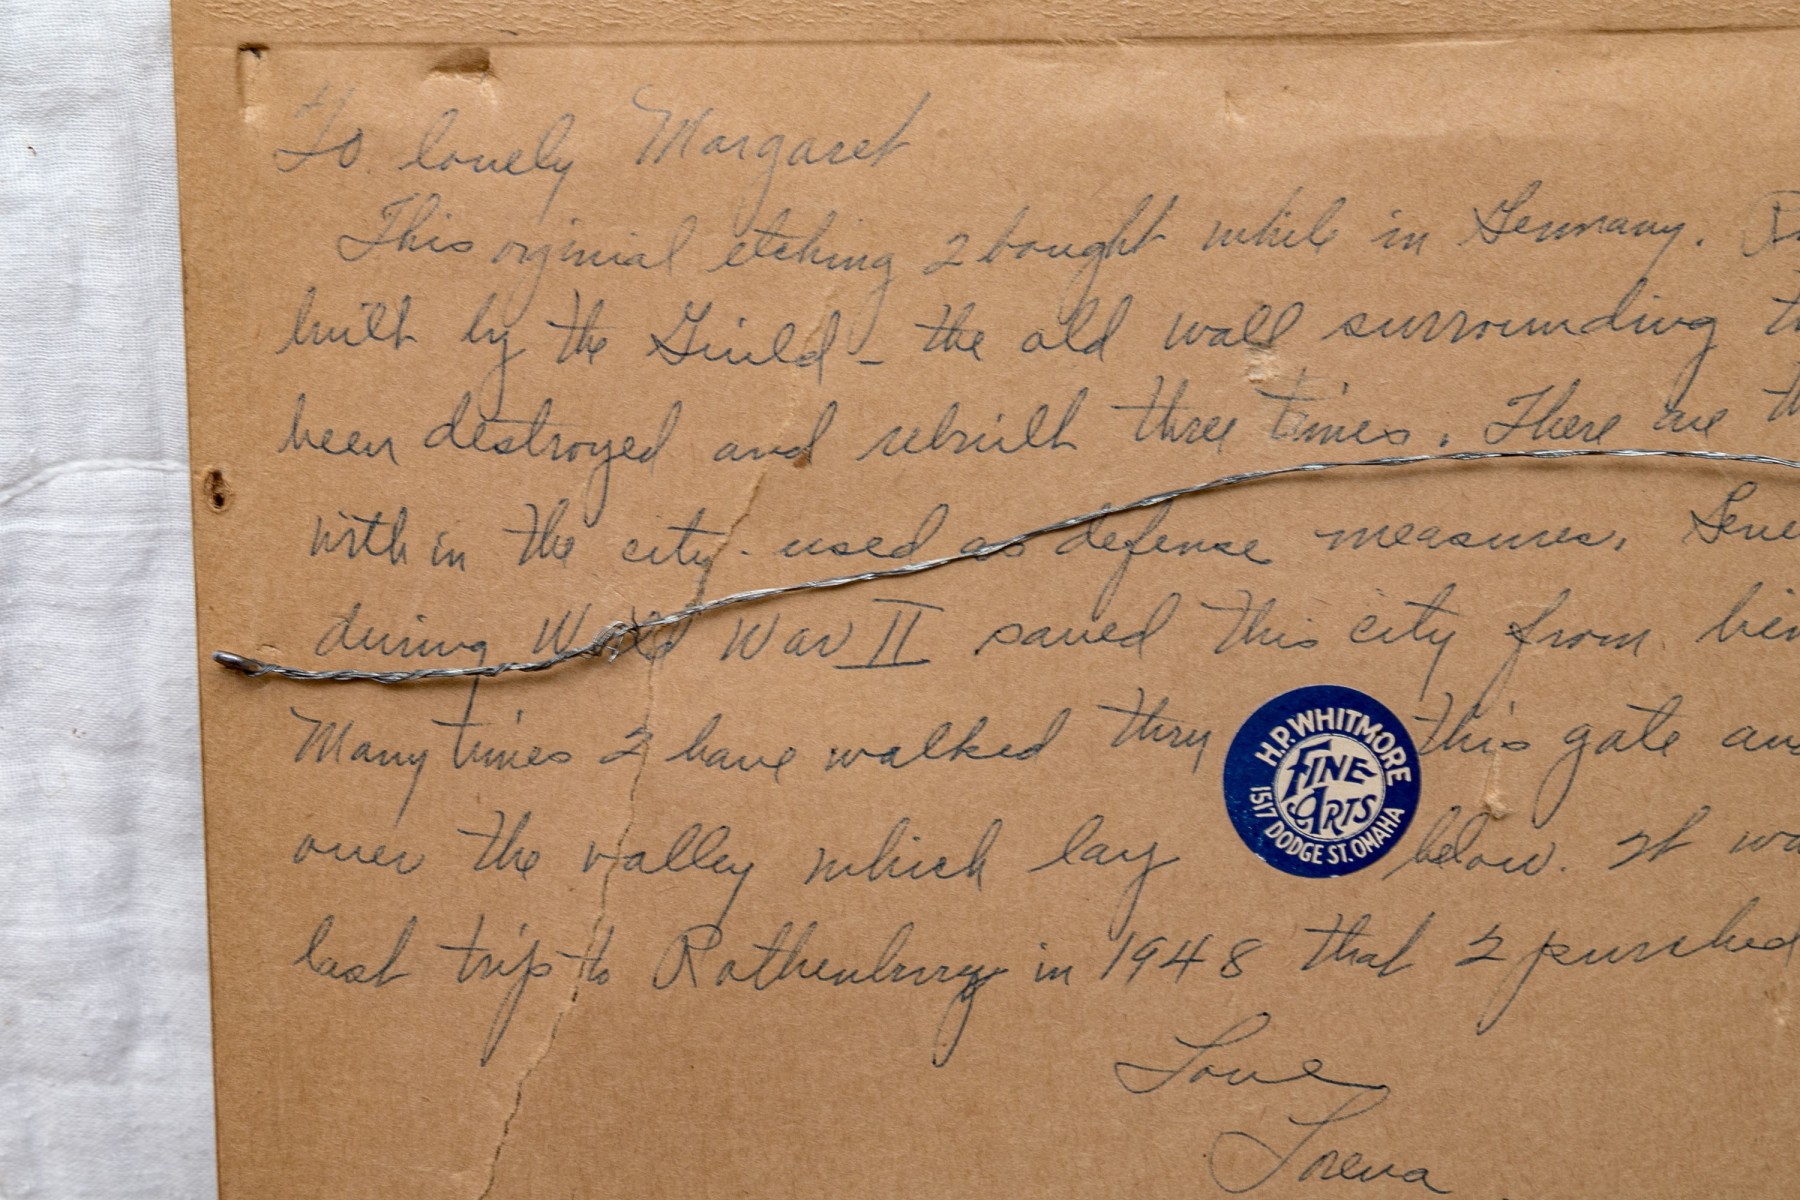 To lovely Margaret
This orginial etching I bought while in Germany.
built by the Guild - the old wall surrounding
been destroyed and rebuilt three times. There are
with in the city. used as defense measures.
during World War II saved this city from
Many times I have walked thru this gate
over the valley which lay below. It
last trip to Rothenburg in 1948 that I purched
Love
Lorena
H.P. WHITMORE
FINE
ARTS
1517 DODGE ST. OMAHA